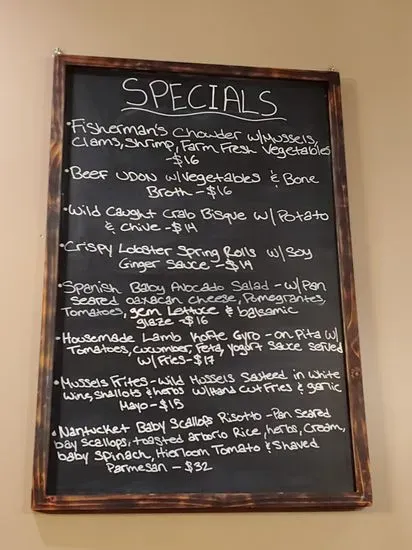 SPECIALS
• Fisherman's Chowder w/Mussels,
Clams, Shrimp, Farm Fresh Vegetables
-$16
• Beef UDON w/Vegetables & Bone
Broth - $16
• Wild Caught Crab Bisque w/ Potato
& Chive - $14
• Crispy Lobster Spring Rolls w/ Soy
Ginger Sauce - $14
• Spanish Baby Avocado Salad - w/ Pan
Seared oaxacan Cheese, Pomegrantes,
Tomatoes, gem Lettuce & balsamic
glaze - $16
• Housemade Lamb Kofte Gyro - on Pita w/
Tomatoes, cucumber, Feta, yogurt Sauce Served
w/ Fries - $17
• Mussels Frites - Wild Mussels Sauteed in white
wine, shallots & herbs w/Hand Cut Fries & garlic
Mayo - $15
• Nantucket Baby Scallops Risotto - Pan Seared
bay Scallops, toasted arborio Rice, herbs, Cream,
baby Spinach, Hierloom Tomato & Shaved
Parmesan - $32